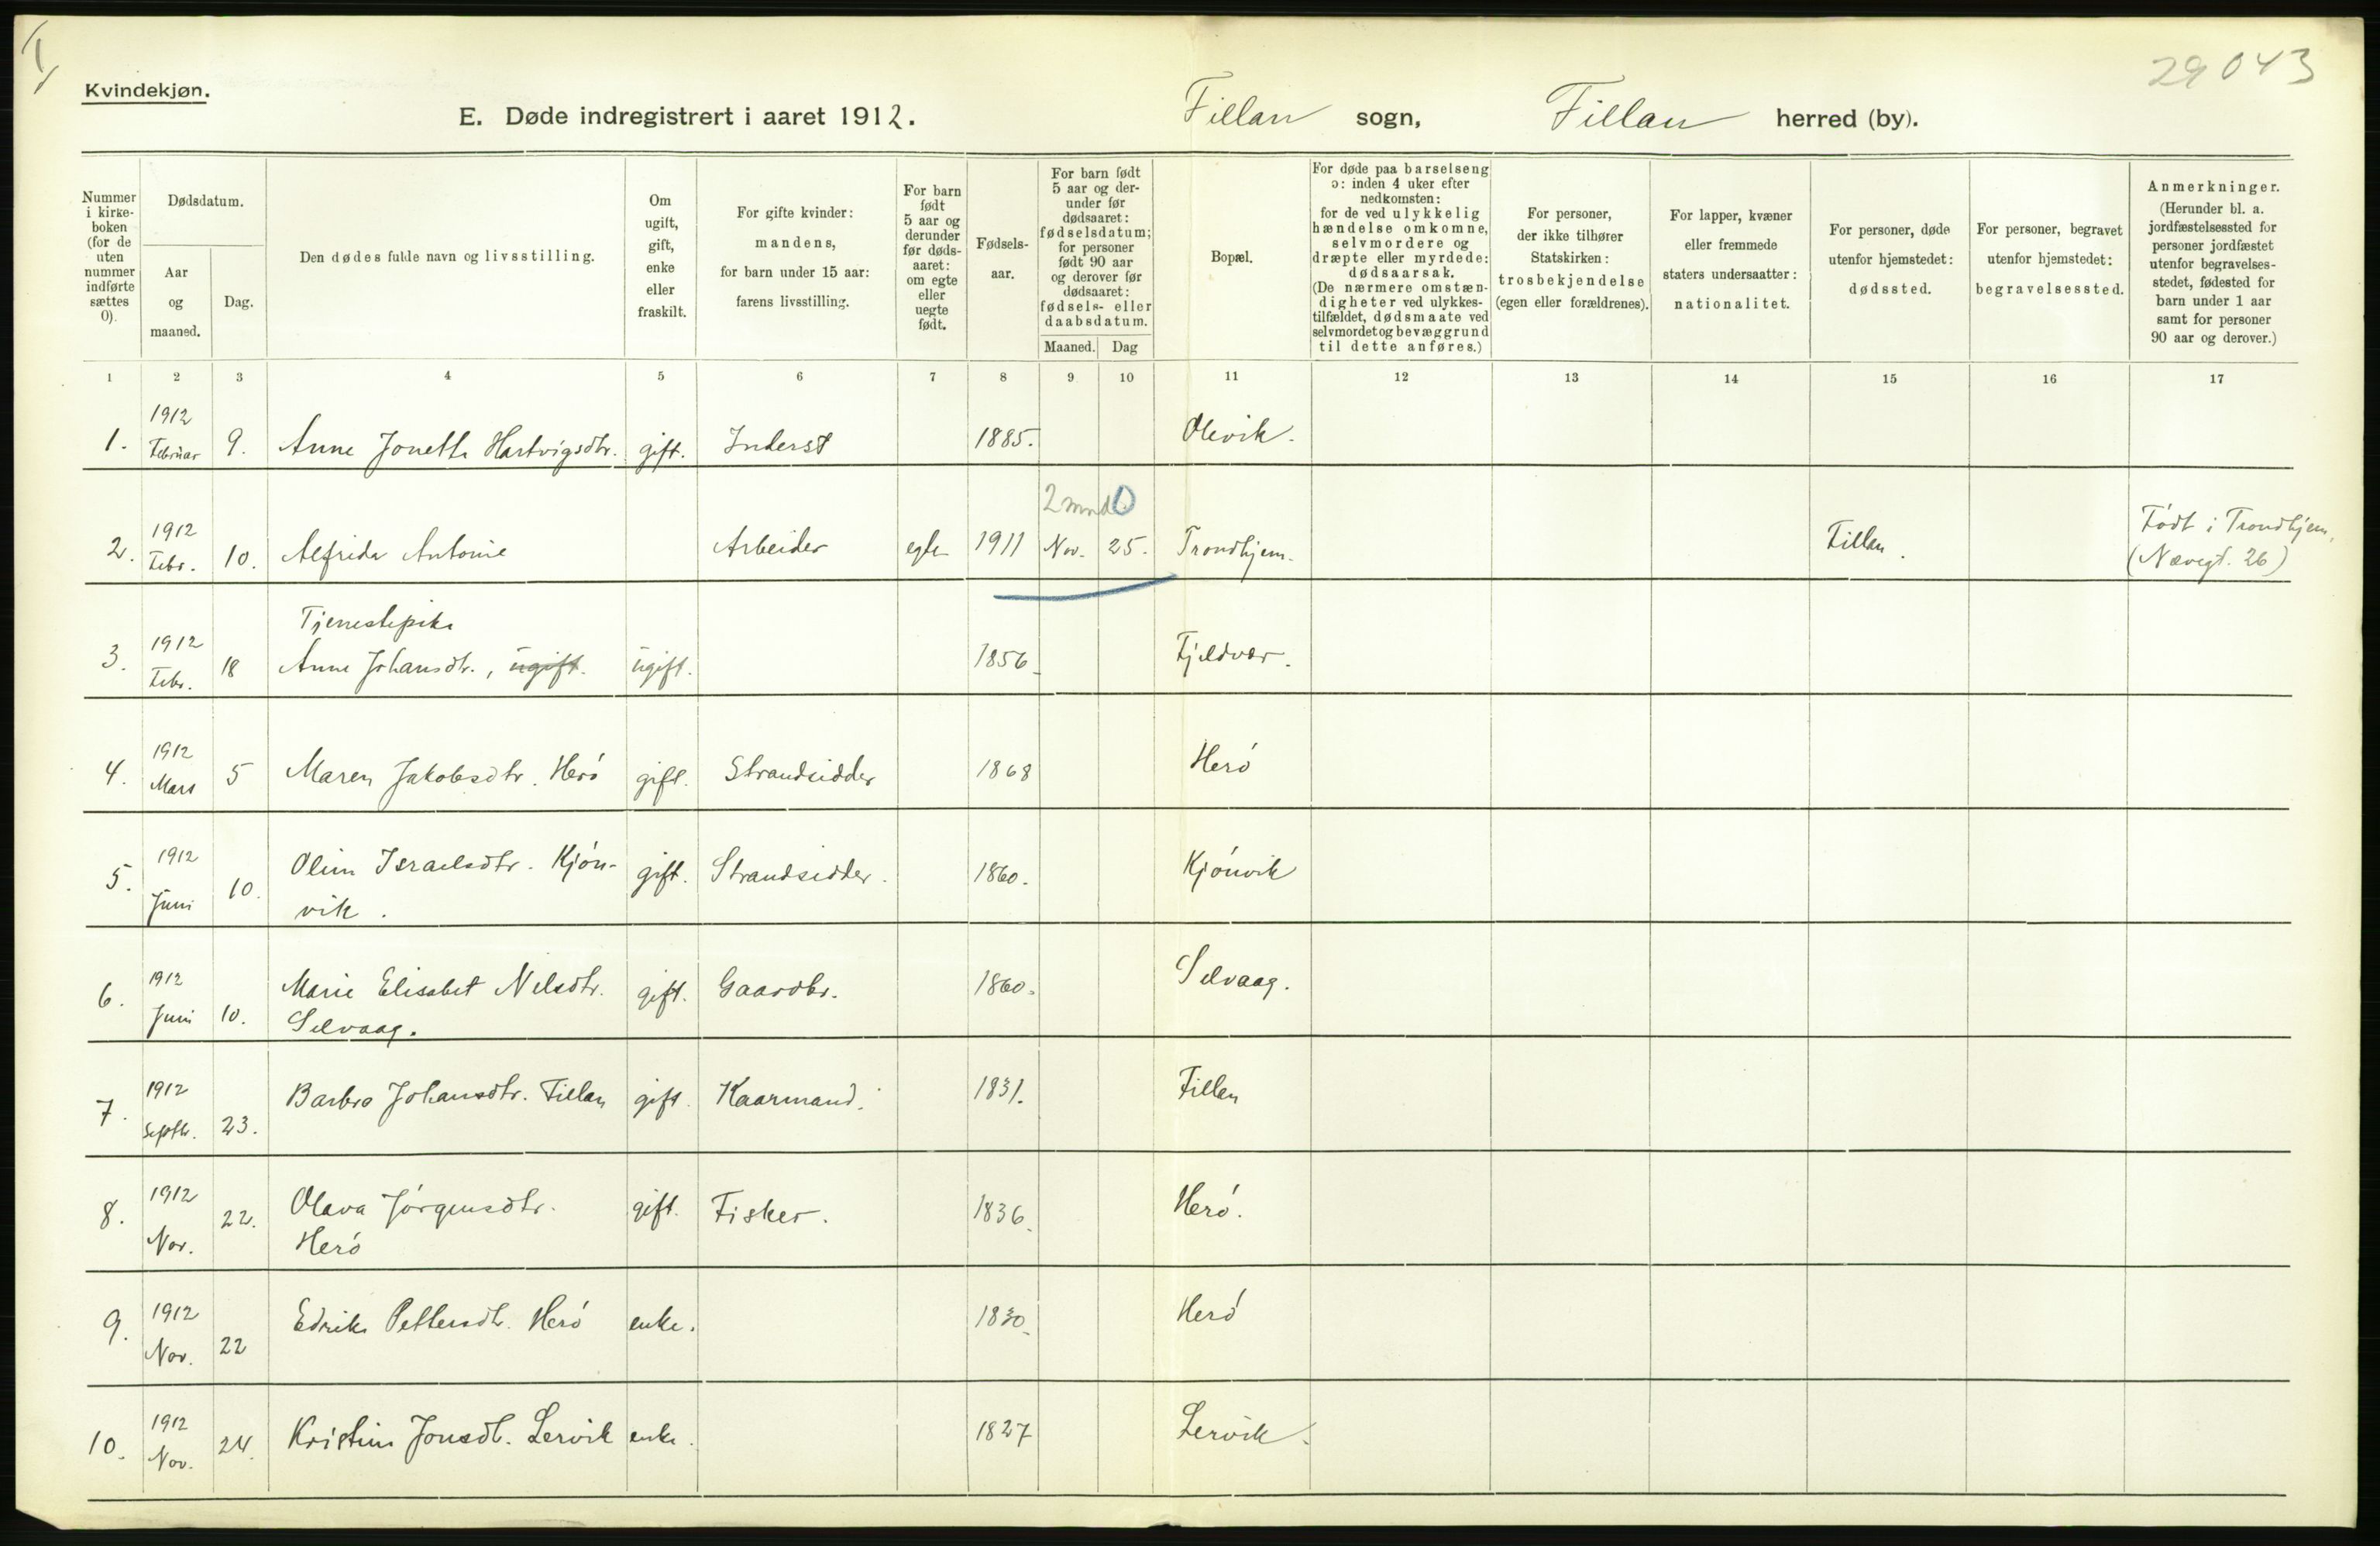 29043
Kvindekjøn.
E. Døde indregistrert i aaret 1912. Fillan sogn, Fillan herred (by).
Nummer i kirke- boken (for de uten nummer indførte sættes 0).
Dødsdatum.
Aar og maaned.
Dag.
Den dødes fulde navn og livsstilling.
Om ugift, gift, enke eller fraskilt.
For gifte kvinder: mandens, for barn under 15 aar: farens livsstilling.
For barn født 5 aar og derunder før døds- aaret: om egte eller uegte født.
Fødsels- aar.
For barn født 5 aar og der- under før dødsaaret: fødselsdatum; for personer født 90 aar og derover før dødsaaret: fødsels- eller daabsdatum.
Maaned. Dag
Bopæl.
For døde paa barselseng ɔ: inden 4 uker efter nedkomsten: for de ved ulykkelig hændelse omkomne, selvmordere og dræpte eller myrdede: dødsaarsak. (De nærmere omstæn- digheter ved ulykkes- tilfældet, dødsmaate ved selvmordet og bevæggrund til dette anføres.)
For personer, der ikke tilhører Statskirken: trosbekjendelse (egen eller forældrenes).
For lapper, kvæner eller fremmede staters undersaatter: nationalitet.
For personer, døde utenfor hjemstedet: dødssted.
For personer, begravet utenfor hjemstedet: begravelsessted.
Anmerkninger. (Herunder bl. a. jordfæstelsessted for personer jordfæstet utenfor begravelses- stedet, fødested for barn under 1 aar samt for personer 90 aar og derover.)
1 2 3 4 5 6 7 8 9 10 11 12 13 14 15 16 17
1. 1912 Februar 9. Anne Jonette Hartvigsdtr. gift. Inderst 1885. Olevik.
2 mnd 0
2. 1912 Febr. 10. Alfrida Antonie Arbeider egte 1911 Nov. 25. Trondhjem. Fillan. Født i Trondhjem, (Nævegt. 26)
Tjenestepike
3. 1912 Febr. 18 Anne Johansdtr., ugift. ugift. 1856. Fjeldvær.
4. 1912 Mars 5 Maren Jakobsdtr. Herö gift. Strandsidder 1868 Herö
5. 1912 Juni 10. Oline Israelsdtr. Kjön-
vik. gift. Strandsidder. 1860. Kjönvik
6. 1912 Juni 10. Marie Elisabet Nilsdtr.
Selvaag. gift. Gaardbr. 1860. Selvaag.
7. 1912 Septbr. 23. Barbro Johansdtr. Fillan gift. Kaarmand. 1831. Fillan
8. 1912 Nov. 22. Olava Jörgensdtr.
Herö gift. Fisker. 1836. Herö.
9. 1912 Nov. 22 Edrike Pettersdtr. Herö enke. 1830. Herö
10. 1912 Nov. 24. Kristine Jonsdtr. Lervik enke. 1827 Lervik.